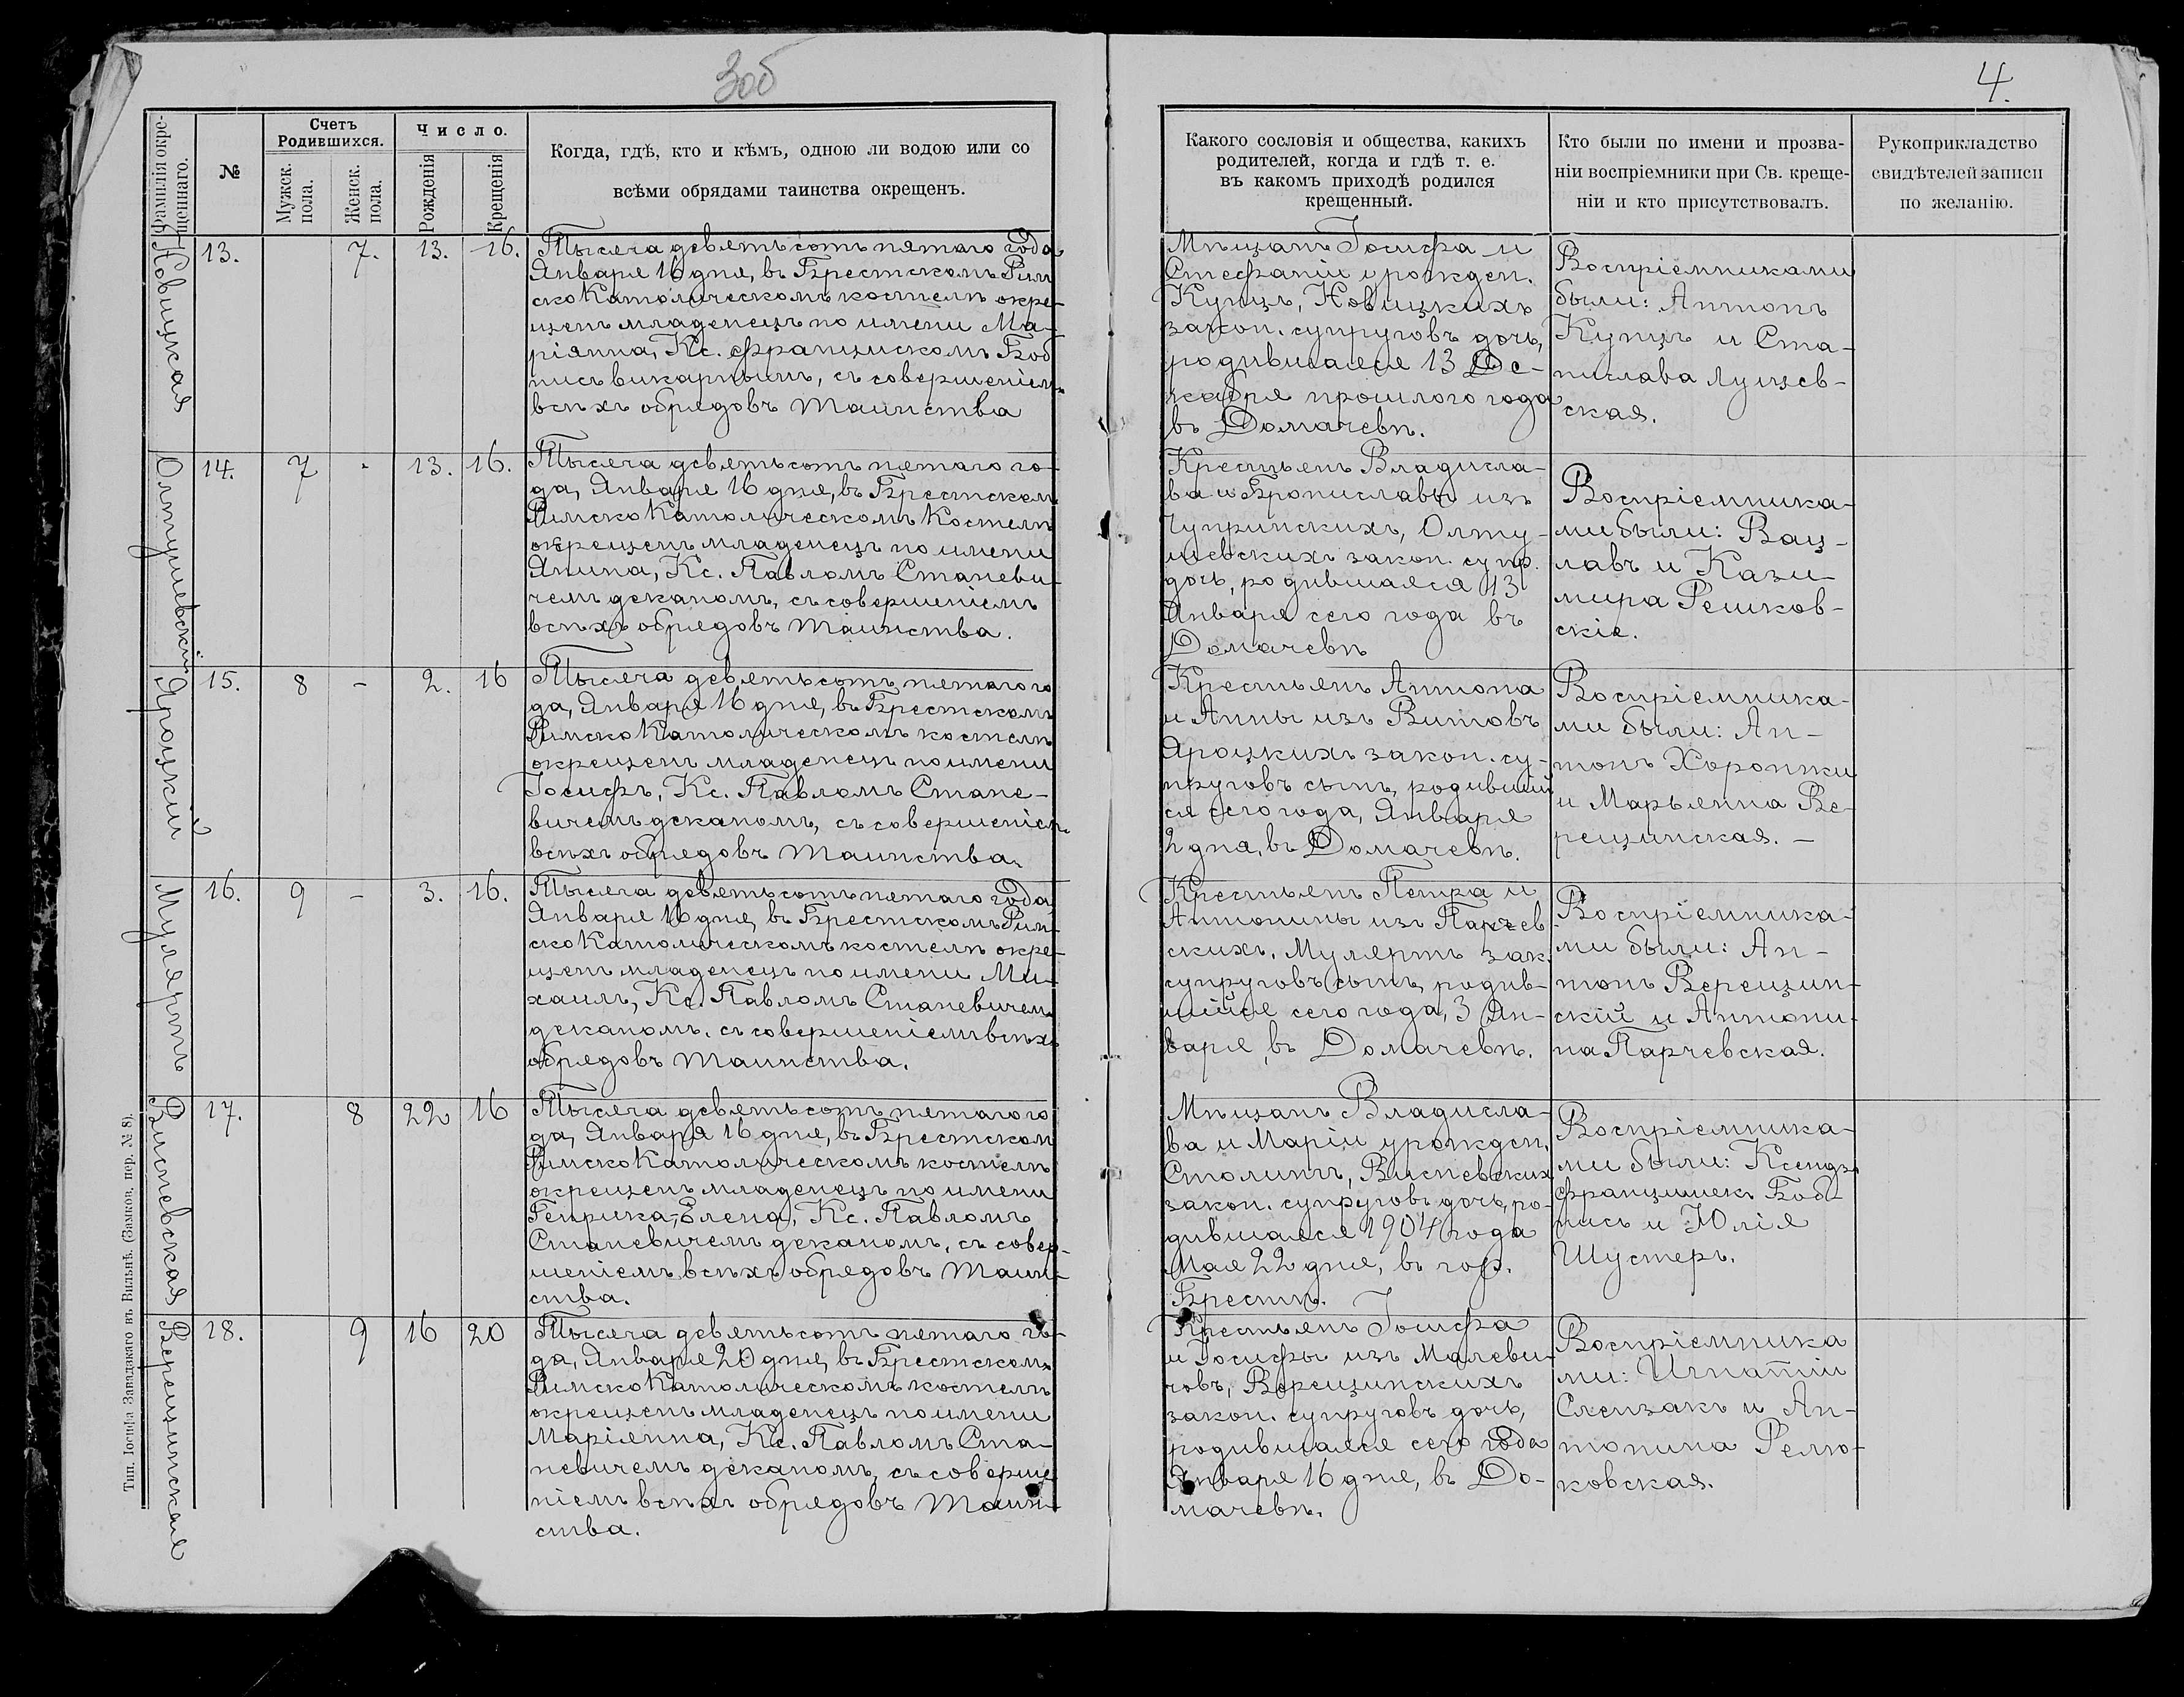 3об
4.
Фамилія окре-
щеннаго.
№
Счетъ
Родившихся.
Мужск.
пола.
Женск.
пола.
Число.
Рожденія
Крещенія
Когда, гдѣ, кто и кѣмъ, одною ли водою или со
всѣми обрядами таинства окрещенъ.
Какого сословія и общества, какихъ
родителей, когда и гдѣ т. е.
въ какомъ приходѣ родился
крещенный.
Кто были по имени и прозва-
ніи воспріемники при Св. креще-
ніи и кто присутствовалъ.
Рукоприкладство
свидѣтелей записи
по желанію.
Новицкая
13.
7.
13.
16.
Тысяча девятьсотъ пятаго года
Января 16 дня, въ Брестскомъ Рим
скоКатолическомъ костелѣ окре-
щенъ младенецъ по имени Ма-
ріянна, Кс. Францискомъ Боб
нисъ викарнымъ, съ совершеніемъ
всѣхъ обрядовъ Таинства
Мѣщанъ Іосифа и
Стефаніи урожден.
Купцъ, Новицкихъ
закон. супруговъ дочь,
родившаяся 13 Де-
кабря прошлого года
въ Домачевѣ.
Воспріемниками
были: Антонъ
Купцъ и Ста-
нислава Лущев-
ская.
Олтушевскій
14.
7
-
13.
16.
Тысяча девятьсотъ пятаго го-
да, Января 16 дня, въ Брестскомъ
РимскоКатолическомъ Костелѣ
окрещенъ младенецъ по имени
Янина, Кс. Павломъ Станеви-
чемъ деканомъ, съ совершеніемъ
всѣхъ обрядовъ Таинства.
Крестьянъ Владисла-
ва и Брониславы изъ
Чупринскихъ, Олту-
шевскихъ закон. супр.
дочь, родившаяся 13
Января сего года въ
Домачевѣ
Воспріемника-
ми были: Вац-
лавъ и Кази-
мира Решков-
скіе.
Яроцкій
15.
8
-
2.
16
Тысяча девятьсотъ пятаго го
да, Января 16 дня, въ Брестскомъ
РимскоКатолическомъ костелѣ
окрещенъ младенецъ по имени
Іосифъ, Кс. Павломъ Стане-
вичемъ деканомъ, съ совершеніемъ
всѣхъ обрядовъ Таинства.
Крестьянъ Антона
и Анны изъ Витовъ
Яроцкихъ закон. су-
пруговъ сынъ, родивший
ся сего года, Января
2 дня, въ Домачевѣ.
Воспріемника-
ми были: Ан-
тонъ Хоронжи
и Марьянна Ве-
рещинская. -
Муляртъ
16.
9
-
3.
16.
Тысяча девятьсотъ пятаго года
Января 16 дня, въ Брестскомъ Рим-
скоКатолическомъ костелѣ окре-
щенъ младенецъ по имени Ми-
хаилъ, Кс. Павломъ Станевичемъ
деканомъ, съ совершеніемъ всѣхъ
обрядовъ Таинства.
Крестьянъ Петра и
Антонины изъ Парчев
скихъ, Мулертъ зак.
супруговъ сынъ, родив-
шійся сего года, 3 Ян-
варя, въ Домачевѣ.
Воспріемника-
ми были: Ан-
тонъ Верещин-
скій и Антони-
на Парчевская.
Висневская
17.
8
22
16
Тысяча девятьсотъ пятаго го
да, Января 16 дня, въ Брестскомъ
РимскоКатолическомъ костелѣ
окрещенъ младенецъ по имени
Генрика-Елена, Кс. Павломъ
Станевичемъ деканомъ, съ совер-
шеніемъ всѣхъ обрядовъ Таин-
ства.
Мѣщанъ Владисла-
ва и Маріи урожден.
Столинъ, Висневскихъ
закон. супруговъ дочь, ро-
дившаяся 1904 года
Мая 22 дня, въ гор.
Брестѣ.
Воспріемника-
ми были: Ксендзъ
Францишекъ Боб-
нисъ и Юлія
Шустеръ.
Верещинская
18.
9
16
20
Тысяча девятьсотъ пятаго го-
да, Января 20 дня, въ Брестскомъ
РимскоКатолическомъ костелѣ
окрещенъ младенецъ по имени
Маріянна, Кс. Павломъ Ста-
невичемъ деканомъ, съ соверше
ніемъ всѣхъ обрядовъ Таин-
ства.
Крестьянъ Іосифа
и Іосифы изъ Малеви-
човъ, Верещинскихъ
закон. супруговъ дочь,
родившаяся сего года
Января 16 дня, въ До-
мачевѣ.
Воспріемника
ми: Игнатій
Слензакъ и Ан-
тонина Релю-
ковская.
Тип. Іосифа Завадзкаго въ Вильнѣ. (Замков. пер. № 8).